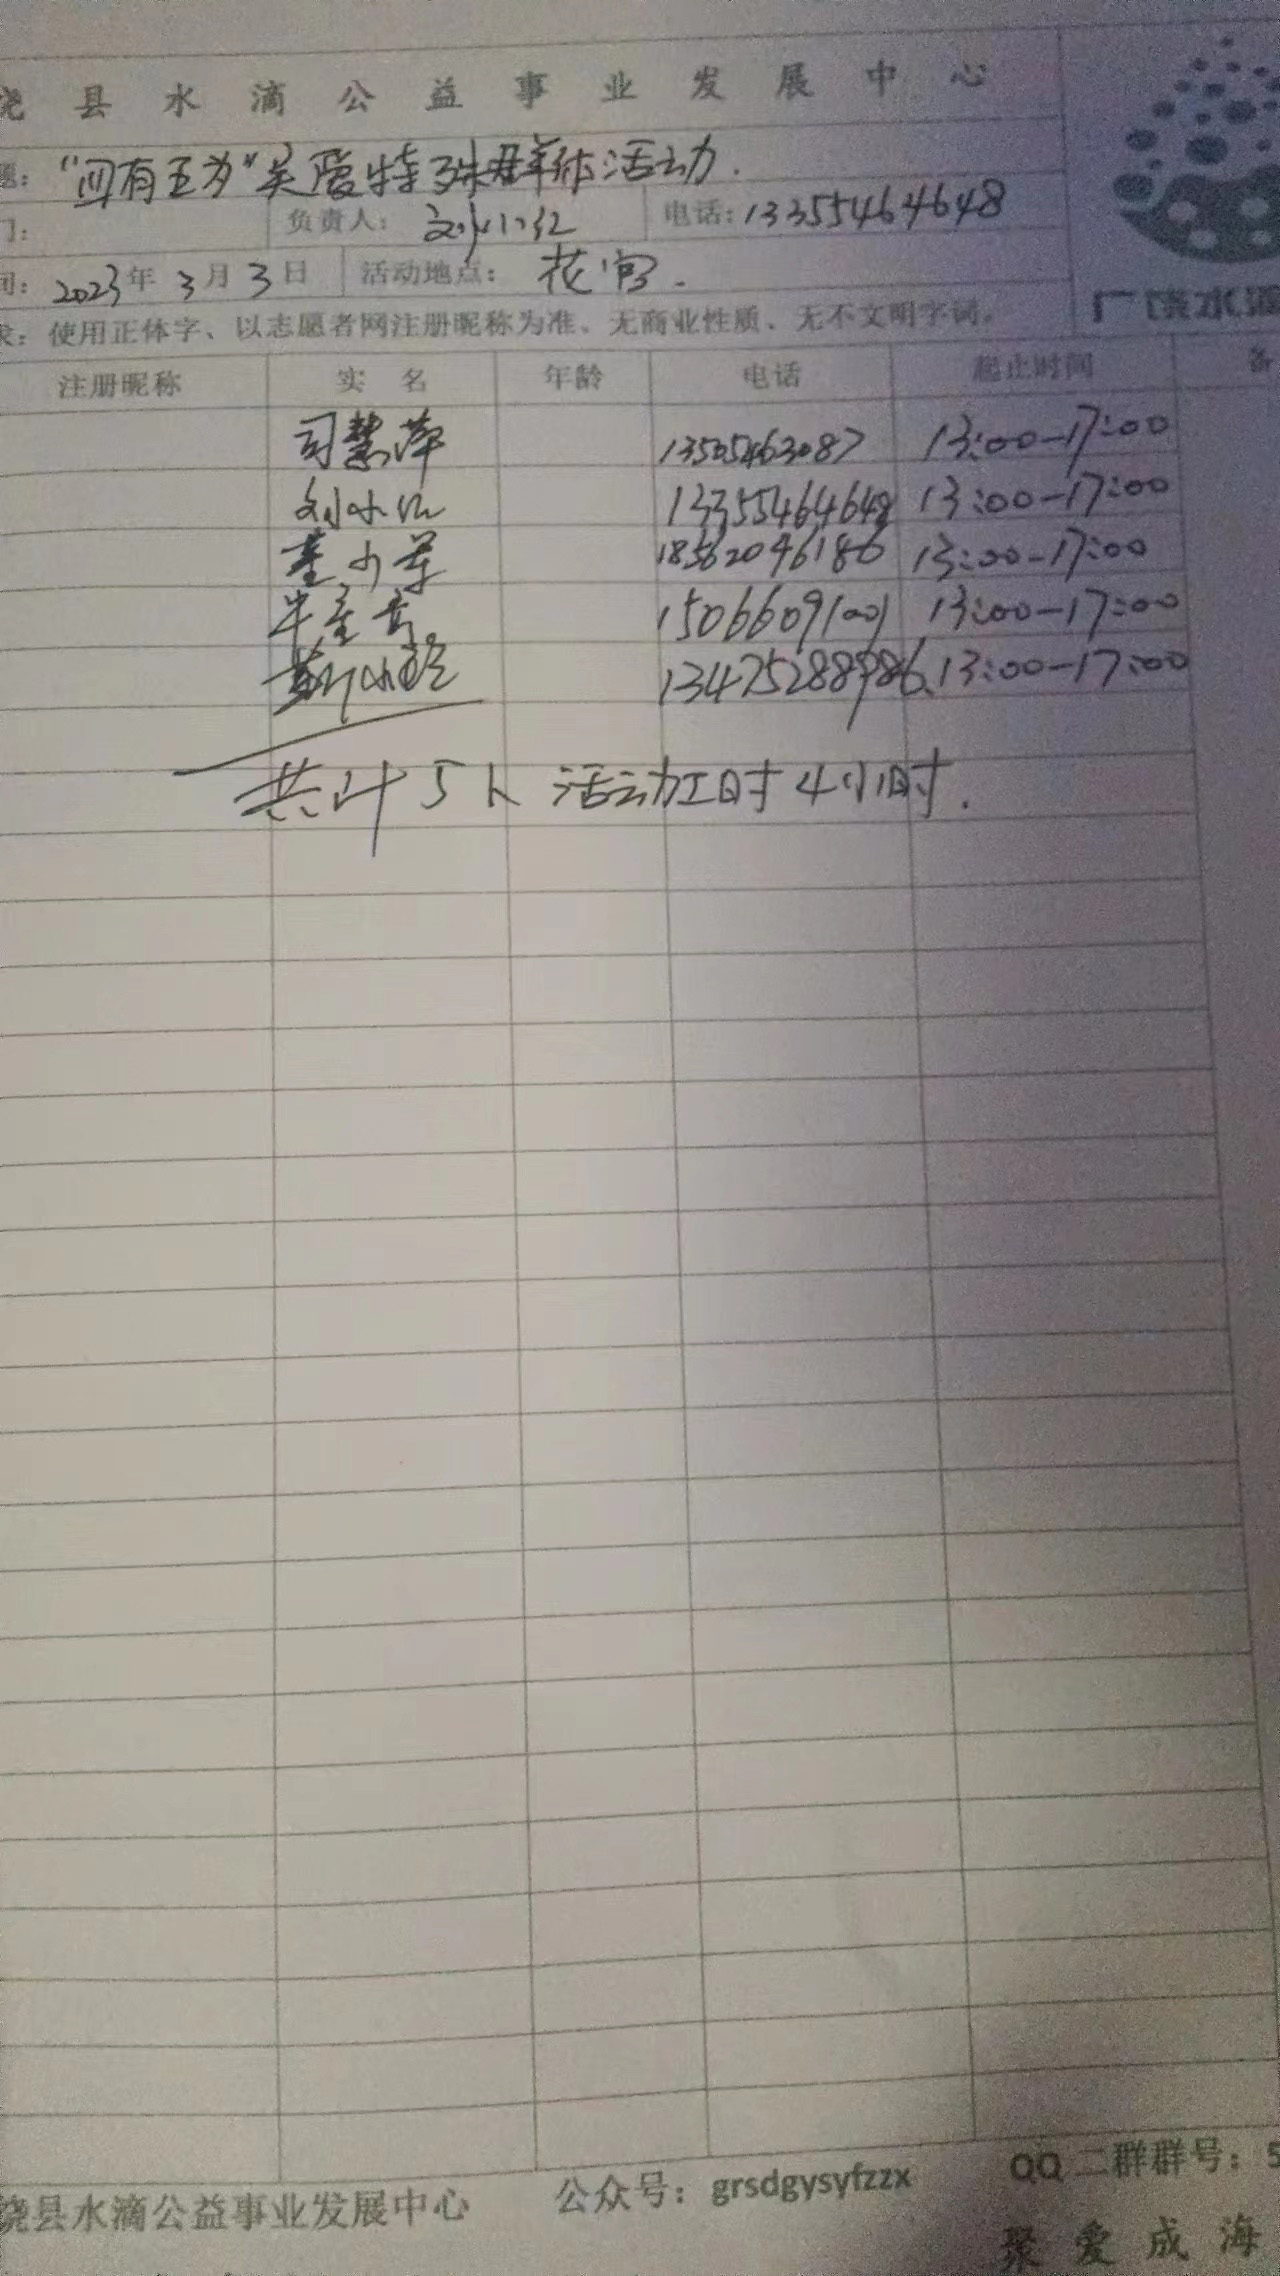 饶县水滴公益事业发展中心
题：“四有五为”关爱特殊群体活动.
门： 负责人：刘小红 电话：13355464648
间：2023年3月3日 活动地点：花官.
求：使用正体字、以志愿者网注册昵称为准、无商业性质、无不文明字词。
广饶水滴
注册昵称 实名 年龄 电话 起止时间 备
司慧萍 13505463087 13:00-17:00
刘小红 13355464648 13:00-17:00
董小军 18562046186 13:00-17:00
15066091001 13:00-17:00
13475288986 13:00-17:00
共计5人 活动工时4小时.
饶县水滴公益事业发展中心 公众号：grsdgysyfzzx QQ二群群号：5
聚爱成海